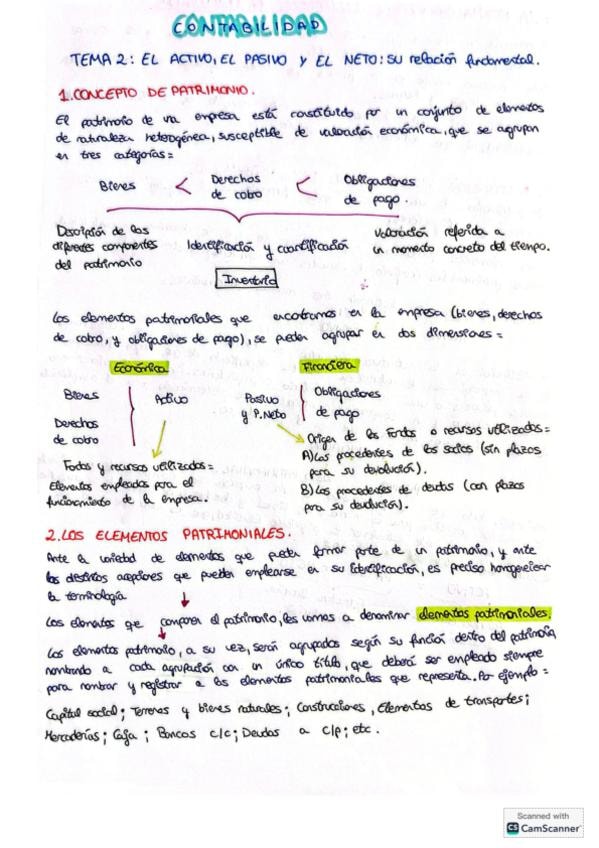 CONTABILIDAD
TEMA 2: EL ACTIVO, EL PASIVO Y EL NETO: su relación fundamental.
1. CONCEPTO DE PATRIMONIO.
El patrimonio de una empresa está constituido por un conjunto de elementos
de naturaleza heterogénea, susceptible de valoración económica, que se agrupan
en tres categorías:
Bienes < Derechos de cobro < Obligaciones de pago.
Descripción de los
diferentes componentes
del patrimonio
Identificación y cuantificación
Valoración referida a
un momento concreto del tiempo.
Inventario
Los elementos patrimoniales que encontramos en la empresa (bienes, derechos
de cobro, y obligaciones de pago), se pueden agrupar en dos dimensiones =
Económica
Bienes
Derechos
de cobro
Activo
Fondos y recursos utilizados =
Elementos empleados para el
funcionamiento de la empresa.
Financiera
Pasivo
y P.Neto
Obligaciones
de pago
Origen de los Fondos o recursos utilizados =
A) Los procedentes de los socios (sin plazos
para su devolución).
B) Los procedentes de deudas (con plazos
para su devolución).
2. LOS ELEMENTOS PATRIMONIALES.
Ante la variedad de elementos que pueden formar parte de un patrimonio, y ante
las distintas acepciones que pueden emplearse en su identificación, es preciso homogeneizar
la terminología
Los elementos que componen el patrimonio, les vamos a denominar elementos patrimoniales.
Los elementos patrimonio, a su vez, serán agrupados según su función dentro del patrimonio
nombrando a cada agrupación con un único título, que deberá ser empleado siempre
para nombrar y registrar a los elementos patrimoniales que representa. Por ejemplo =
Capital social; Terrenos y bienes naturales; Construcciones, Elementos de transportes;
Mercaderías; Caja; Bancos c/c; Deudas a c/p; etc.
Scanned with
CS CamScanner